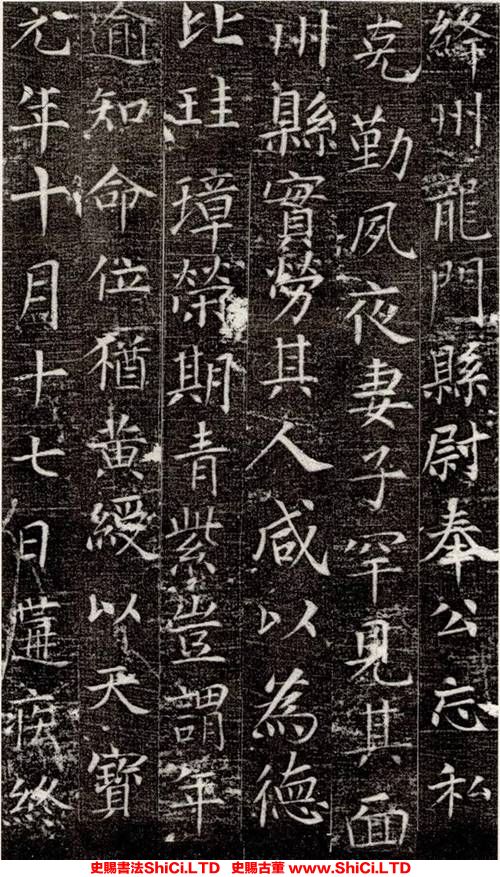 絳州龍門縣尉奉公忘私
克勤夙夜妻子罕見其面
州縣實勞其人咸以為德
比珪璋榮期青紫豈謂年
逾知命位猶黃綬以天寶
元年十月十七日遘疾終
史賜書法ShiCi.LTD 史賜古董 www.ShiCi.LTD